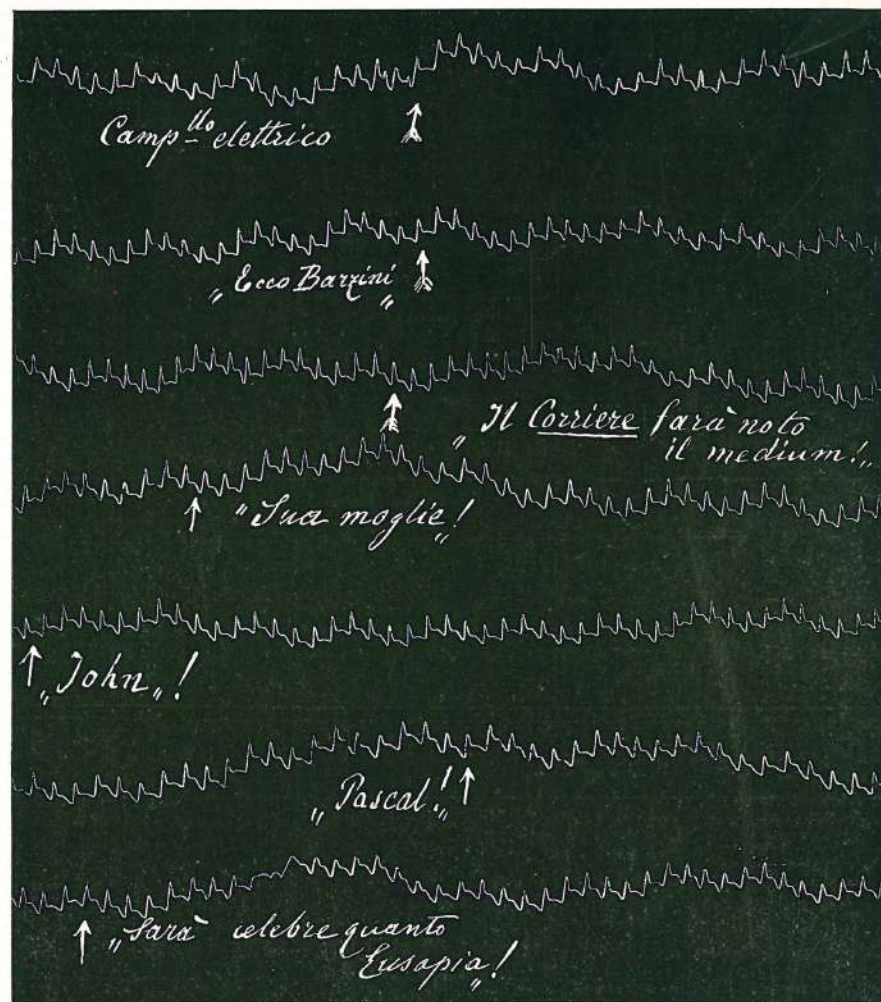 Camp.llo elettrico
„Ecco Barzini„
„Il Corriere farà noto
il medium!„
„Sua moglie„!
„John„!
„Pascal!„
„Sarà celebre quanto
Eusapia„!